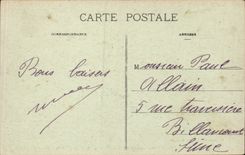 CARTE POSTALE
CORRESPONDANCE
ADRESSE
Bons baisers
Monsieur Paul
Allain
5 rue traversière
Billancourt
Seine